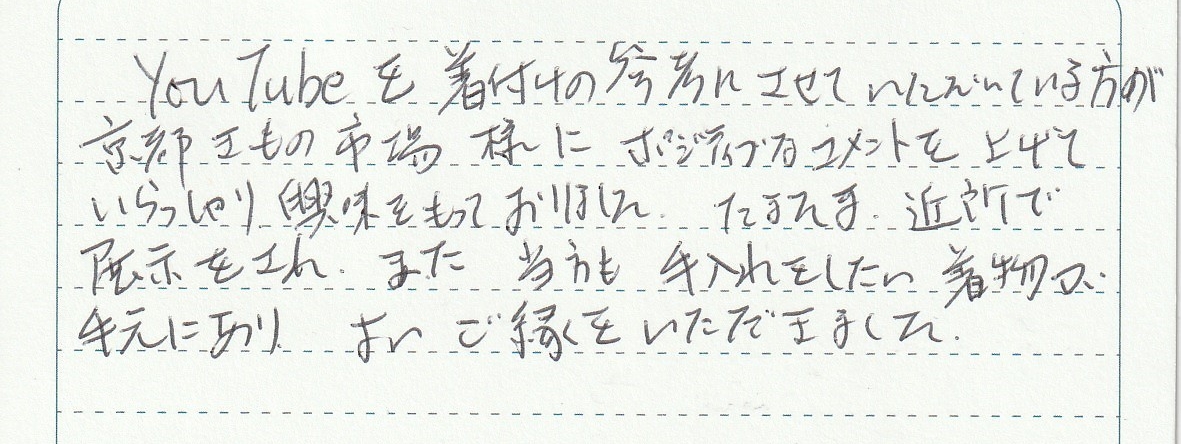 YouTubeを着付けの参考にさせていただいている方が
京都きもの市場 様に ポジティブなコメントを上げて
いらっしゃり興味をもっておりました. たまたま. 近所で
展示をされ. また 当方も 手入れをしたい 着物が.
手元にあり よい ご縁をいただきました.